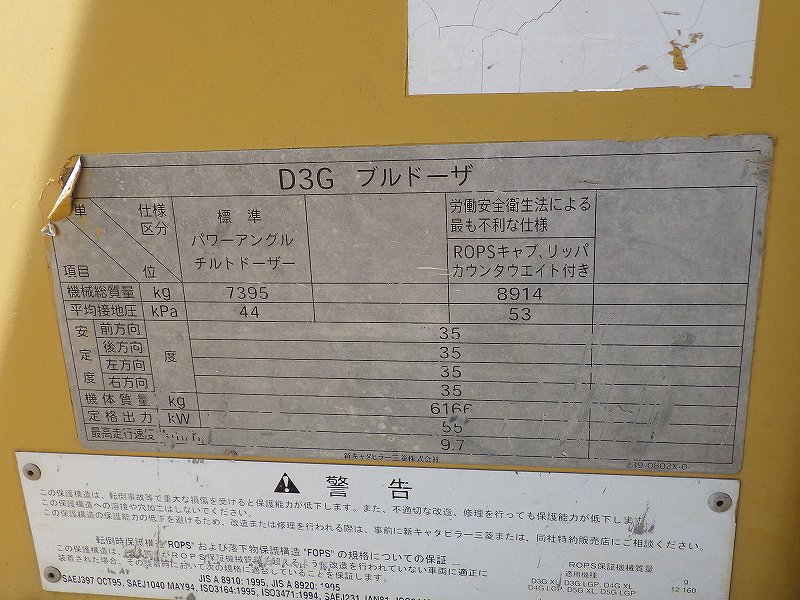 D3G ブルドーザ
単 仕様
区分
項目 位
標準
パワーアングル
チルトドーザー
労働安全衛生法による
最も不利な仕様
ROPSキャブ、リッパ
カウンタウエイト付き
機械総質量 kg 7395 8914
平均接地圧 kPa 44 53
安定度 度
前方向 35
後方向 35
左方向 35
右方向 35
機体質量 kg 6166
定格出力 kW 55
最高走行速度 9.7
新キャタピラー三菱株式会社 239-0802X-0
警告
この保護構造は、転倒事故等で重大な損傷を受けると保護能力が低下します。また、不適切な改造、修理を行っても保護能力が低下します。
この保護構造への溶接や穴加工はしないでください。
この保護構造の保護能力の低下を避けるため、改造または修理を行われる際は、事前に新キャタピラー三菱または、同社特約販売店にご相談ください。
転倒時保護構造"ROPS"および落下物保護構造"FOPS"の規格についての保証
この保護構造は、ROPS保証機械質量を超えるような改造を行われていない車両に適正に
装着された場合、その装着時において次の規格に適合していることを保証します。
JIS A 8910:1995, JIS A 8920:1995
SAEJ397 OCT95, SAEJ1040 MAY94, ISO3164:1995, ISO3471:1994, SAEJ231 JAN81,
ROPS保証機械質量
適用機種
D3G XL, D3G LGP, D4G XL 12 160
D4G LGP, D5G XL, D5G LGP